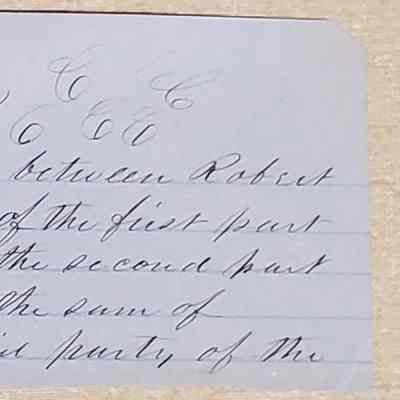 C C
C C C
between Robert
of the first part
the second part
the sum of
party of the